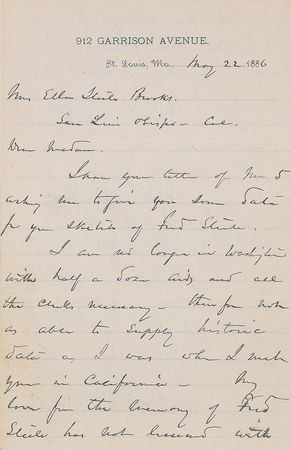 912 GARRISON AVENUE.
St. Louis, Mo., May 22 1886
Mrs Ella Steele Brooks.
San Luis Obispo - Cal.
Dear Madam.
I have your letter of May 5
asking me to give you some data
for your sketch of Fred Steele.
I am no longer in Washington
with half a doz aids and all
the clerks necessary - therefore not
as able to supply historic
data as I was when I met
you in California - My
love for the memory of Fred
Steele has not lessened with